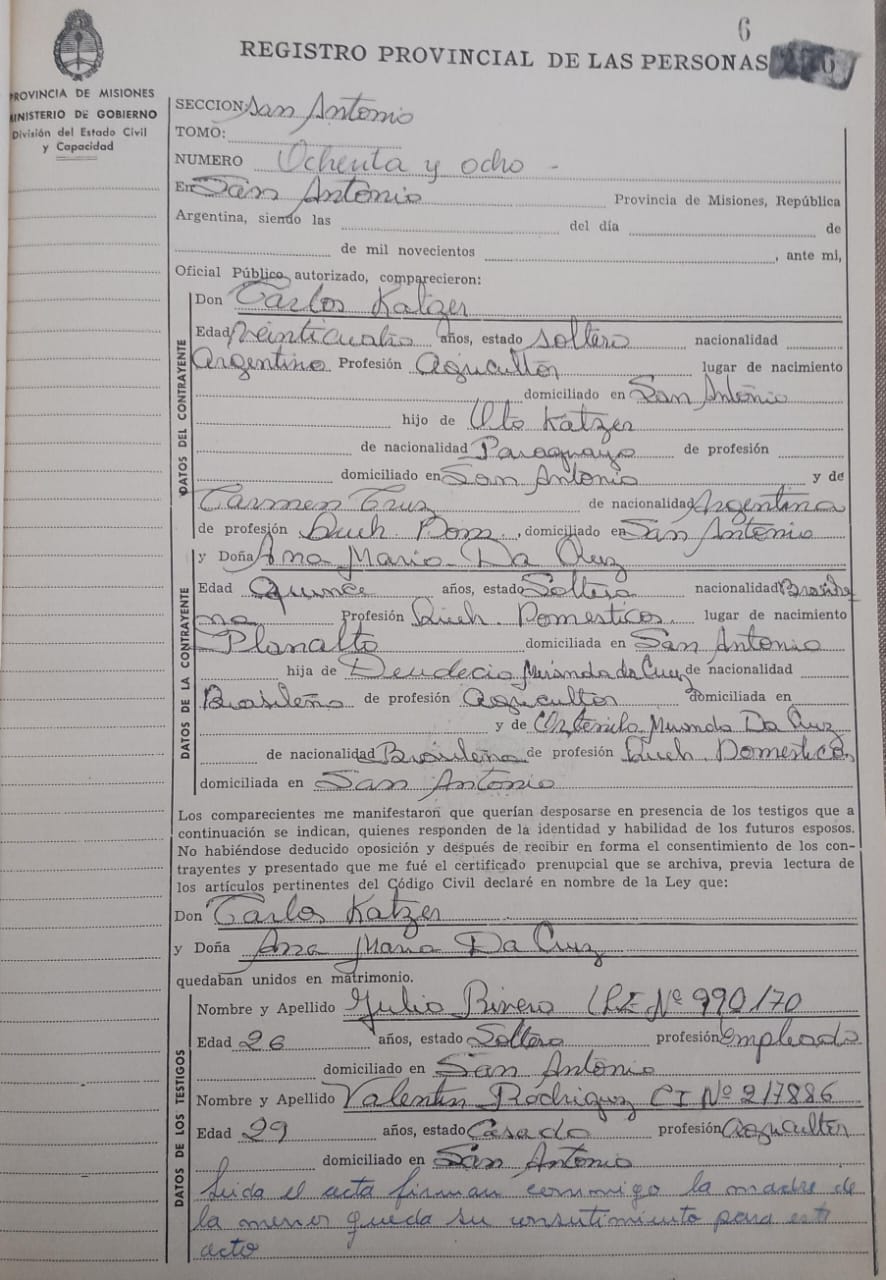 6
REGISTRO PROVINCIAL DE LAS PERSONAS
PROVINCIA DE MISIONES
MINISTERIO DE GOBIERNO
División del Estado Civil
y Capacidad
SECCION: San Antonio
TOMO:
NUMERO Ochenta y ocho -
En San Antonio Provincia de Misiones, República
Argentina, siendo las del día de
de mil novecientos , ante mi,
Oficial Público autorizado, comparecieron:
DATOS DEL CONTRAYENTE
Don Carlos Katzer
Edad Veinticuatro años, estado soltero nacionalidad
Argentino Profesión Agricultor lugar de nacimiento
domiciliado en San Antonio
hijo de Oto Katzer
de nacionalidad Paraguayo de profesión
domiciliado en San Antonio y de
Carmen Cruz de nacionalidad Argentina
de profesión Queh. Dom. , domiciliado en San Antonio
DATOS DE LA CONTRAYENTE
y Doña Ana Maria Da Cruz
Edad Quince años, estado Soltera nacionalidad Brasile
na Profesión Queh. Domesticos lugar de nacimiento
Planalto domiciliada en San Antonio
hija de Deudecio Miranda da Cruz de nacionalidad
Brasileño de profesión Agricultor domiciliada en
y de Miranda Da Cruz
de nacionalidad Brasileña de profesión Queh Domesticos
domiciliada en San Antonio
Los comparecientes me manifestaron que querían desposarse en presencia de los testigos que a
continuación se indican, quienes responden de la identidad y habilidad de los futuros esposos.
No habiéndose deducido oposición y después de recibir en forma el consentimiento de los con-
trayentes y presentado que me fué el certificado prenupcial que se archiva, previa lectura de
los artículos pertinentes del Código Civil declaré en nombre de la Ley que:
Don Carlos Katzer
y Doña Ana Maria Da Cruz
quedaban unidos en matrimonio.
DATOS DE LOS TESTIGOS
Nombre y Apellido Julio Rivero Nº 990170
Edad 26 años, estado Soltero profesión Empleado
domiciliado en San Antonio
Nombre y Apellido Valentin Rodriguez CI Nº 217886
Edad 29 años, estado Casado profesión Agricultor
domiciliado en San Antonio
Leida el acta firman conmigo la madre de
la menor queda su consutimiento para este
acto